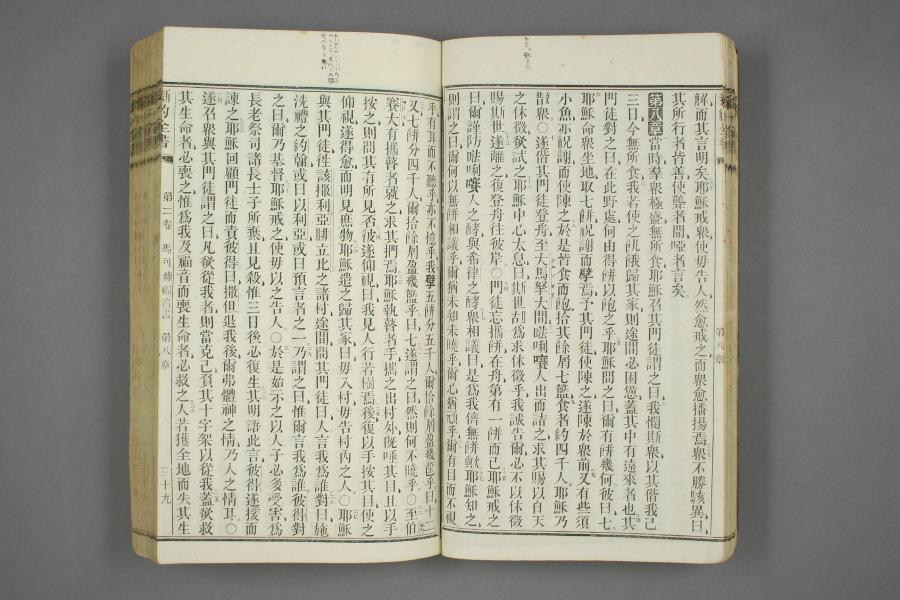 解、而其言明矣、耶穌戒衆、使毋告人、然愈戒之、而衆愈播揚焉、衆不勝駭異曰、
其所行者皆善、使聾者聞、啞者言矣、
第八章 當時、羣衆極盛、無所食、耶穌召其門徒謂之曰、我憫斯衆、以其偕我已
三日、今無所食、我若使之飢餓歸其家、則途間必困憊、蓋其中有遠來者也、其
門徒對之曰、在此野處、何由得餅以飽之乎、耶穌問之曰、爾有餅幾何、彼曰七、
耶穌命衆坐地、取七餅祝謝而擘焉、予其門徒、使陳之、遂陳於衆前、又有些須
小魚、亦祝謝、而使陳之、於是皆食而飽、拾其餘屑七籃、食者約四千人、耶穌乃
散衆○遂偕其門徒登舟、至大馬拏大、𠵽唎㘔人出而詰之、求其賜以自天
之休徵、欲試之、耶穌中心太息曰、斯世胡爲求休徵乎、我誠告爾、必不以休徵
賜斯世、遂離之、復登舟往彼岸○門徒忘攜餅、在舟第有一餅而已、耶穌戒之
曰、爾謹防𠵽唎㘔人之酵、與希律之酵、衆相議曰、是爲我儕無餅歟、耶穌知之、
則謂之曰、爾何以無餅相議乎、爾猶未知未曉乎、爾心猶頑乎、爾有目而不視
第八章
乎、有耳而不聽乎、亦不憶乎、我擘五餅、分五千人、爾拾餘屑盈幾筐乎、曰、十二、
又七餅分四千人、爾拾餘屑盈幾籃乎、曰、七、遂謂之曰、然則何不曉乎○至伯
賽大、有攜瞽者就之、求其捫焉、耶穌執瞽者手、攜之出村外、既唾其目、且以手
按之、則問其有所見否、彼遂仰視曰、我見人行、若樹焉、後復以手按其目、使之
仰視、遂得愈、而明見庶物、耶穌遣之歸其家曰、毋入村、毋告村內之人○耶穌
與其門徒、往該撒利亞腓立比之諸村、途間問其門徒曰、人言我爲誰、對曰、施
洗禮之約翰、或曰以利亞、或曰預言者之一、乃謂之曰、惟爾言我爲誰、彼得對
之曰、爾乃基督、耶穌戒之、使毋以之告人○於是始示之以人子必多受害、爲
長老祭司諸長士子所棄、且見殺、惟三日後必復生、其明語此言、彼得遂援而
諫之、耶穌回顧門徒、而責彼得曰、撒但退我後、爾弗體神之情、乃人之情耳○
遂召衆與其門徒謂之曰、凡欲從我者、則當克己、負其十字架以從我、蓋欲救
其生命者、必喪之、惟爲我及福音而喪生命者、必救之、人若獲全地而失其生
新約全書 第二卷 馬可傳福音書 第八章 三十九